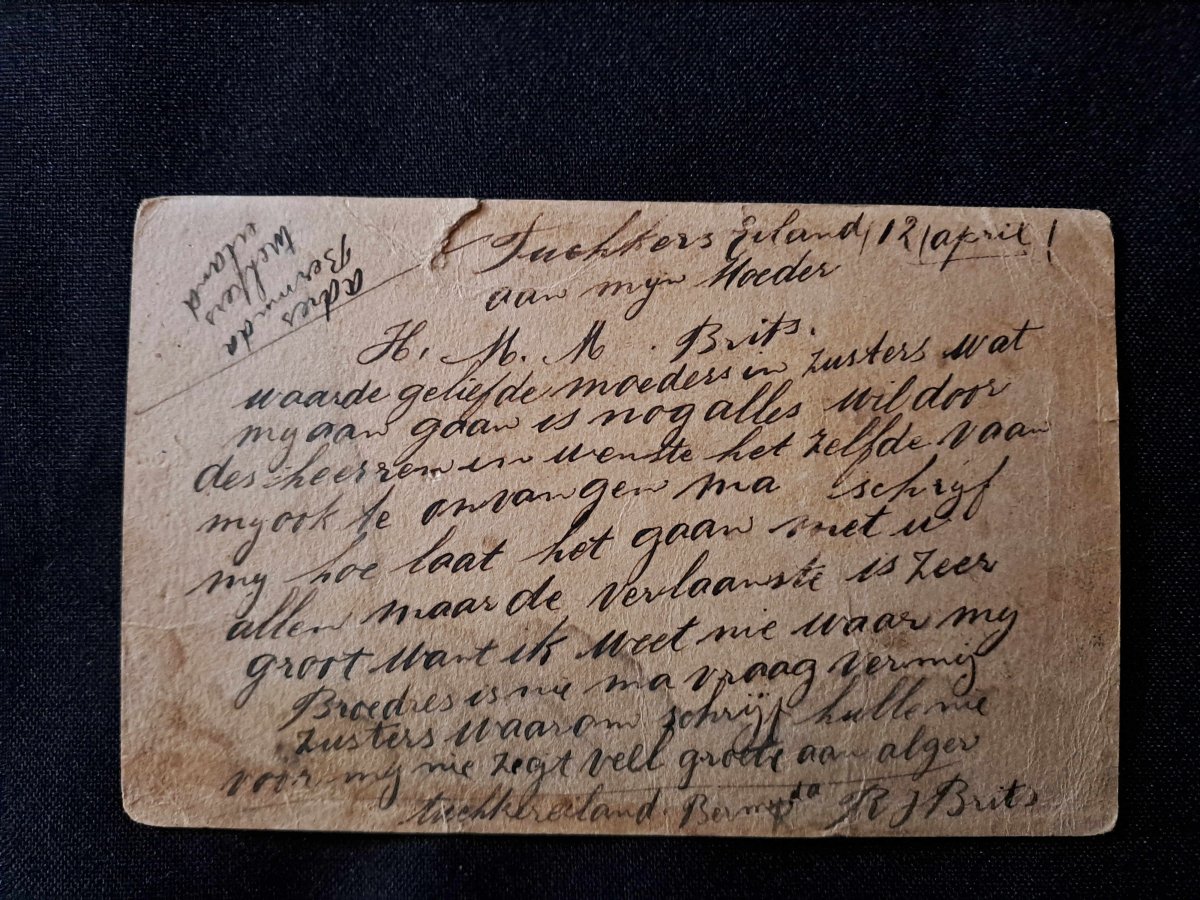 Tuchkers Eiland 12 april
aan myn Moeder
H. M. M. Brits.
waarde geliefde moeders in zusters wat
my aan gaan is nog alles wil door
des heerren in wenste het zelfde vaan
my ook te onvangen ma schryf
my hoe laat het gaan met u
allen maar de verlaanste is zeer
groot want ik weet nie waar my
Broedres is nie ma vraag vermij
zusters waarom schrijf hulle nie
voor my nie zegt vell groete aan alger
tuchkereiland Bermuda R J Brits
adres
Bermuda
tuckers